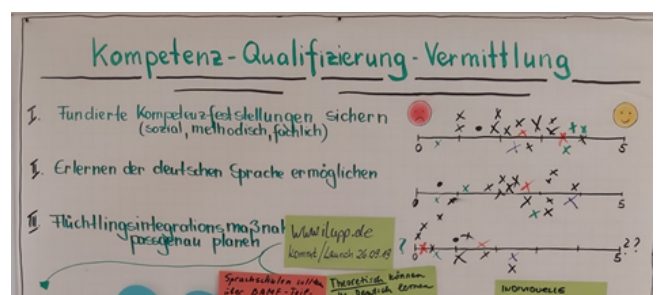 Kompetenz-Qualifizierung-Vermittlung
I. Fundierte Kompetenzfeststellungen sichern
(sozial, methodisch, fachlich)
0 5
II. Erlernen der deutschen Sprache ermöglichen
0 5
III. Flüchtlingsintegrationsmaßnah
passgenau planen
www.ilupp.de
kommt/Launch 26.09.19
? 0 5 ??
Sprachschulen sollten
über BAMF-Teil-
Theoretisch können
Deutsch lernen
INDIVIDUELLE